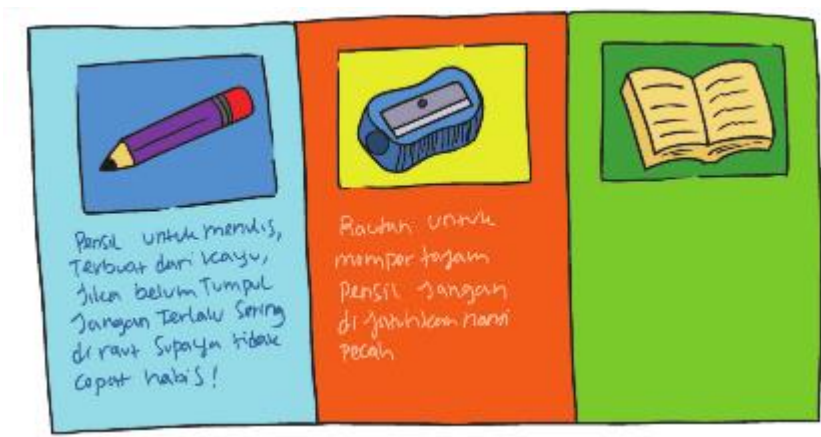 Pensil untuk menulis,
Terbuat dari kayu,
Jika belum Tumpul
Jangan Terlalu Sering
di raut Supaya tidak
cepat habis!
Rautan untuk
mempertajam
Pensil Jangan
di jatuhkan nanti
Pecah